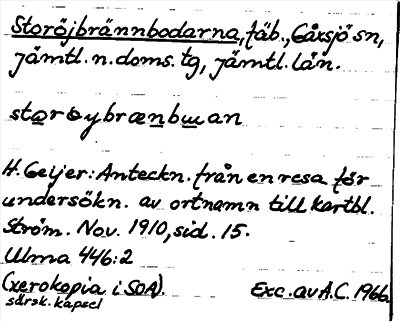 Storöjbrännbodarna, fäb., Gåxsjö sn,
jämtl. n. doms. tg, jämtl. län.
storöybrænbɯan
H. Geijer: Anteckn. från en resa för
undersökn. av ortnamn till kartbl.
Ström. Nov. 1910, sid. 15.
Ulma 446:2
(xerokopia i SOA). Exc. av A.C. 1966
särsk. kapsel